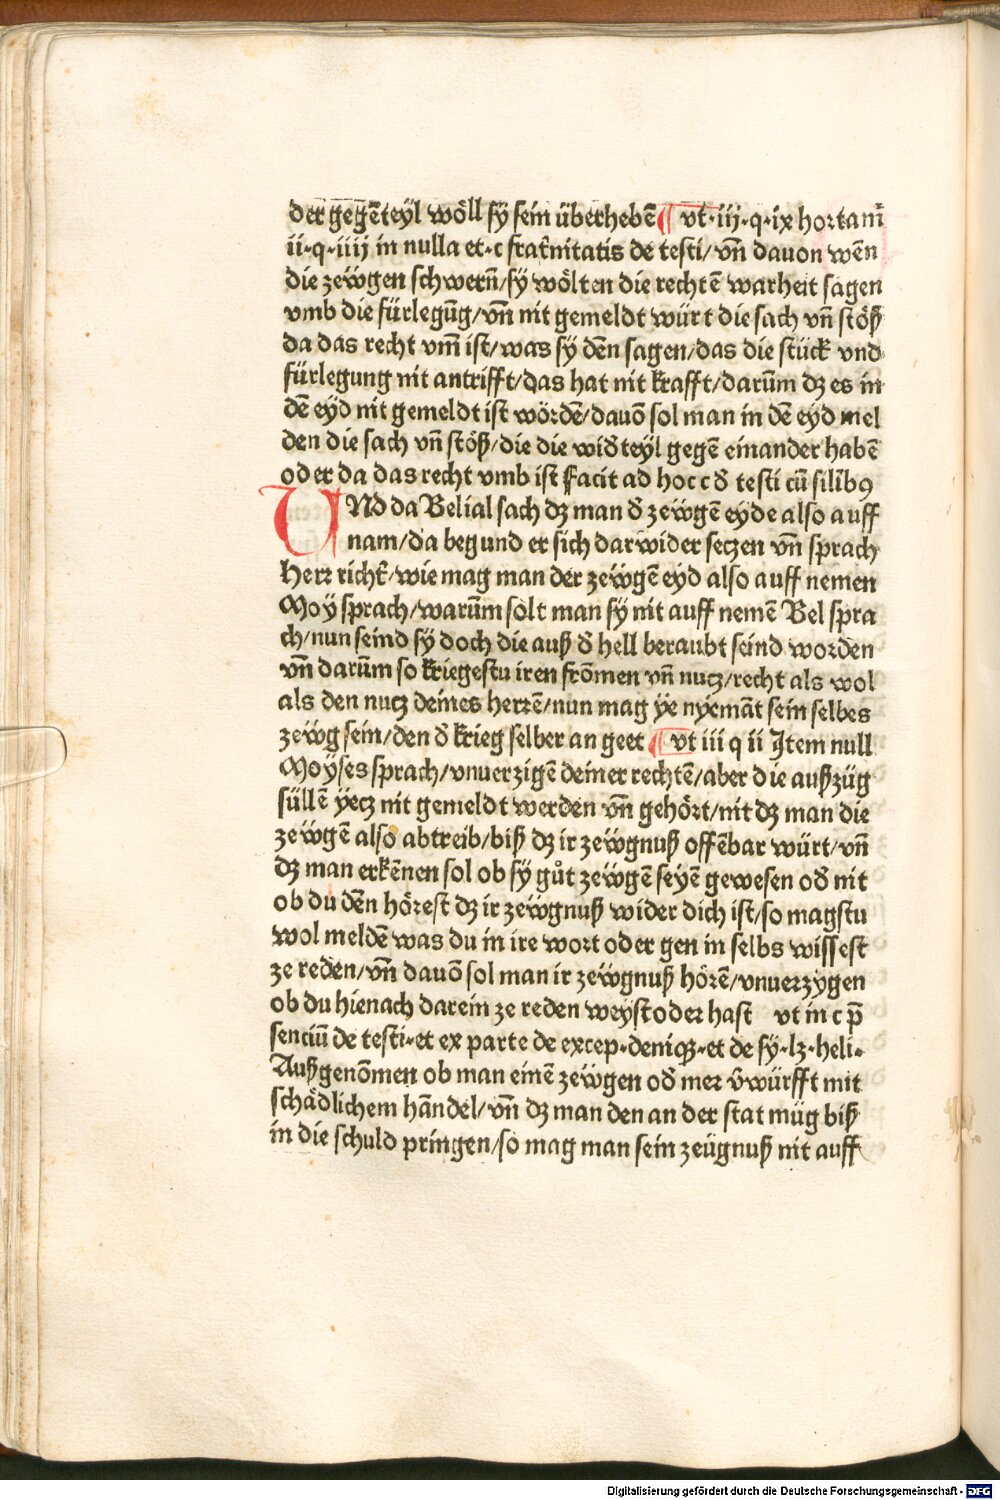 der gegēteyl wöll sÿ sein überhebē ¶ vt·iij·q·ix hortam̄
ii·q·iiij in nulla et·c frat̄nitatis de testi/ vn̄ dauon wēn
die zeẅgen schwern̄/sÿ wölten die rechtē warheit sagen
vmb die fürlegūg/vn̄ nit gemeldt würt die sach vn̄ stöß
da das recht vm̄ ist/was sÿ dēn sagen/das die stück vnd
fürlegung nit antrifft/das hat nit krafft/darūm dz es in
dē eÿd nit gemeldt ist wordē/dauō sol man in dē eÿd mel
den die sach vn̄ stöß/die die wid̄teyl gegē einander habē
oder da das recht vmb ist Facit ad hoc c d̄ testi cū silībꝰ
VNd da Belial sach dz man d̄ zeẅgē eyde also auff
nam/da begund er sich darwider seczen vn̄ sprach
Herr richt̄/wie mag man der zeẅgē eÿd also auff nemen
Moÿ sprach/warūm solt man sÿ nit auff nemē Bel spra
ch/nun seind sÿ doch die auß d̄ hell beraubt seind worden
vn̄ darūm so kriegestu iren frōmen vn̄ nutz/recht als wol
als den nutz deines herrē/nun mag ÿe nyemāt sein selbes
zeẅg sein/den d̄ krieg selber an geet ¶ vt iii q ii Item null
Moÿses sprach/vnuerzigē deiner rechtē/aber die außzüg
süllē ÿecz nit gemeldt werden vn̄ gehört/nit dz man die
zeẅgē also abtreib/biß dz ir zeẅgnuß offēbar würt/vn̄
dz man erkēnen sol ob sÿ gůt zeẅgē seÿē gewesen od̄ nit
ob du dēn hörest dz ir zeẅgnuß wider dich ist/so magstu
wol meldē was du in ire wort oder gen in selbs wissest
ze reden/vn̄ dauō sol man ir zeẅgnuß hörē/vnuerzygen
ob du hienach darein ze reden weÿst oder hast vt in c p̄
senciū de testi·et ex parte de excep·deniqꝫ·et de sÿ·lz·heli·
Außgenōmen ob man einē zeẅgen od̄ mer v̄würfft mit
schädlichem hāndel/vn̄ dz man den an der stat müg biß
in die schuld pringen/so mag man sein zeügnuß nit auff
Digitalisierung gefördert durch die Deutsche Forschungsgemeinschaft - DFG